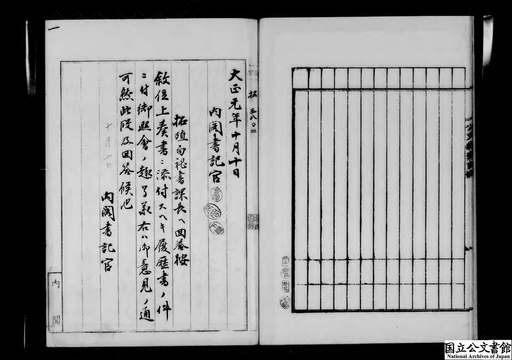 大正元年十月十日
内閣書記官
拓殖局秘書課長ヘ回答按
叙位上奏書ニ添付スヘキ履歴書ノ件
ニ付御照会ノ趣了承右ハ御意見ノ通
可然此段及回答候也
十月十日
内閣書記官
内閣
国立公文書館
National Archives of Japan